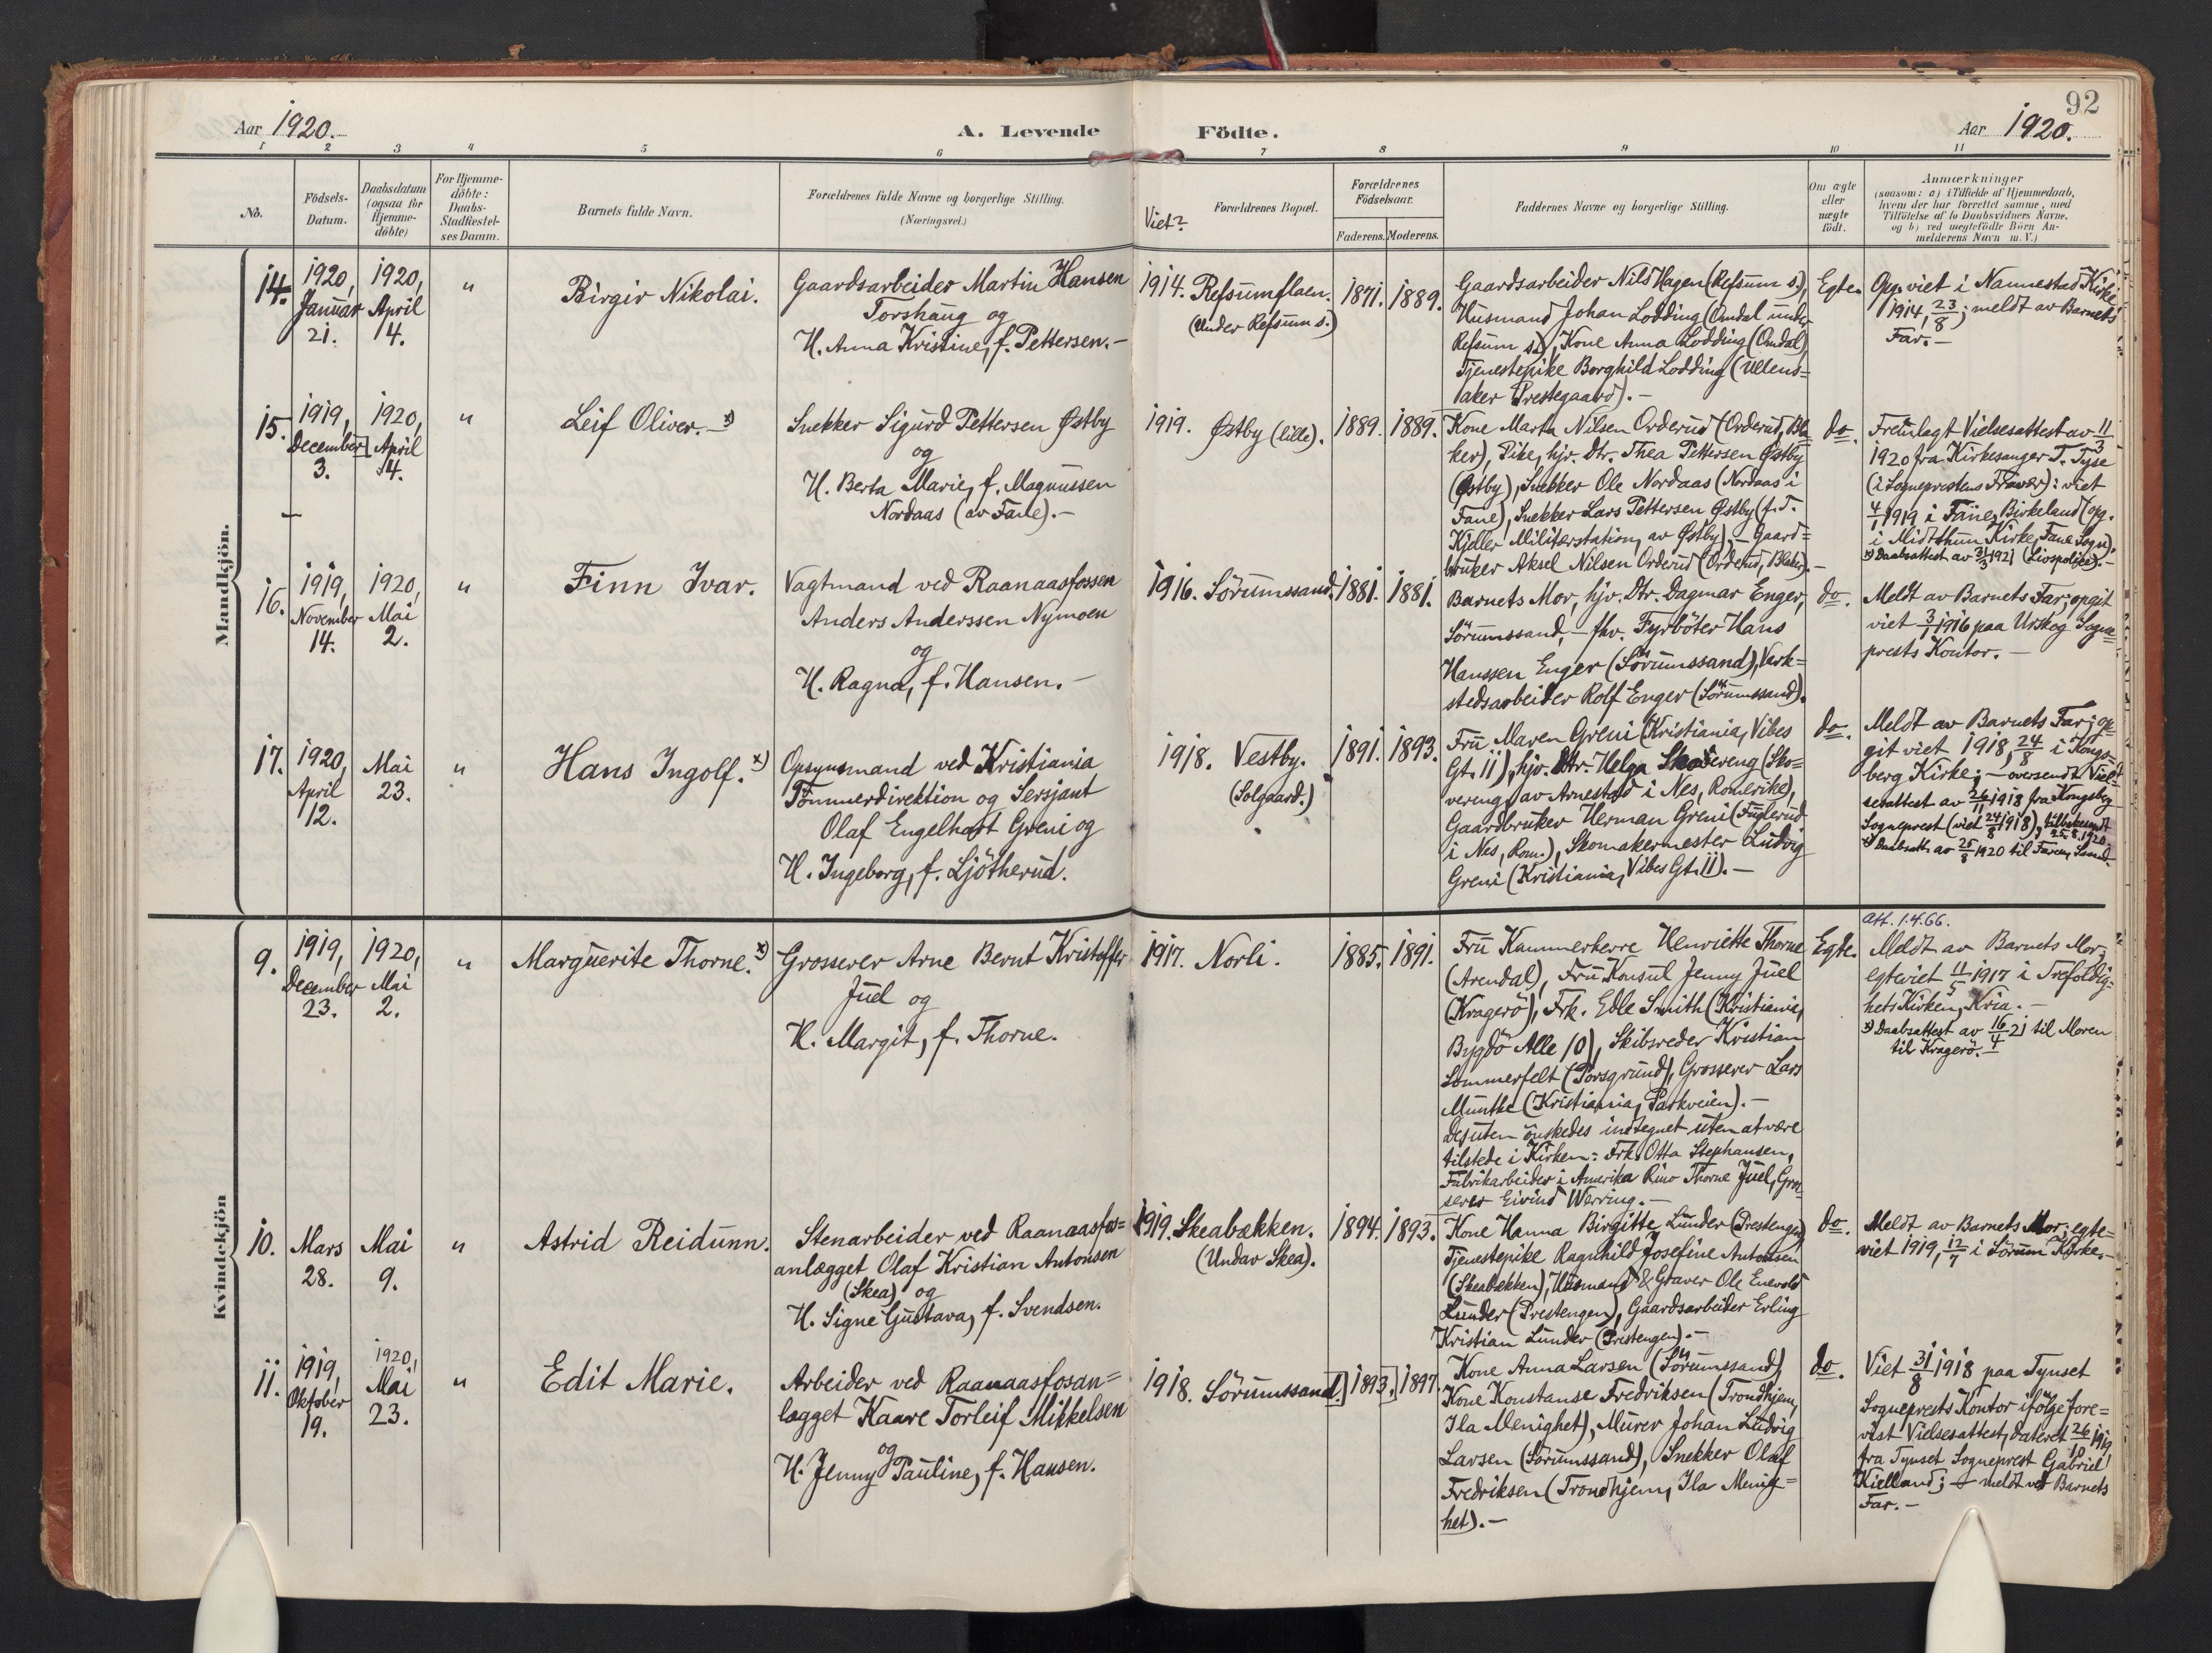 92
Aar 1920.
A. Levende Födte.
Aar 1920.
1 2 3 4 5 6 7 8 9 10 11
No.
Födsels-
Datum.
Daabsdatum
(ogsaa for
Hjemme-
döbte)
For Hjemme-
döbte:
Daabs-
Stadfæstel-
ses Datum.
Barnets fulde Navn.
Forældrenes fulde Navne og borgerlige Stilling.
(Næringsvei.)
Viet?
Forældrenes Bopæl.
Forældrenes
Födselsaar.
Faderens. Moderens.
Faddernes Navne og borgerlige Stilling.
Om ægte
eller
uægte
födt.
Anmærkninger
(saasom: a) i Tilfælde af Hjemmedaab,
hvem der har forrettet samme, med
Tilföielse af to Daabsvidners Navne,
og b) ved uægtefödte Börn An-
melderens Navn m. V.)
Mandkjön.
14.
1920,
Januar
21.
1920,
April
4.
"
Birgir Nikolai.
Gaardsarbeider Martin Hansen
Torshaug og
H. Anna Kristine, f. Pettersen. -
1914.
Refsumflaen.
(under Refsum s.)
1871.
1889.
Gaardsarbeider Nils Hagen (Refsum s.),
Husmand Johan Lodding (Omdal under
Refsum s.), Kone Anna Lodding (Omdal),
Tjenestepike Borghild Lodding (Ullens=
aker Prestegaard). -
Egte.
Opg. viet i Nannestad Kirke
1914, 23/8; meldt av Barnets
Far. -
15.
1919,
December
3.
1920,
April
4.
"
Leif Oliver. - x)
Snekker Sigurd Pettersen Østby
og
H. Berta Marie, f. Magnussen
Nordaas (av Fane). -
1919.
Østby (lille).
1889.
1889.
Kone Marta Nilsen Orderud (Orderud, Bla=
ker), Pike, hjv. Dtr. Thea Pettersen Østby
(Østby), Snekker Ole Nordaas (Nordaas i
Fane), Snekker Lars Pettersen Østby (f. T.
Kjeller Militærstation, av Østby), - Gaard=
bruker Aksel Nilsen Orderud (Orderud, Blaker). -
do.
Fremlagt Vielsesattest av 11/3
1920 fra Kirkesanger T. Tyse
(i Sogneprestens Fravær): viet
4/1 1919 i Fane, Birkeland (og.
i Midtthun Kirke, Fane Sogn).
x) Daabsattest av 31/3 1921 (Livspolise). -
16.
1919,
November
14.
1920,
Mai
2.
"
Finn Ivar.
Vagtmand ved Raanaasfossen
Anders Anderssen Nymoen
og
H. Ragna, f. Hansen. -
1916.
Sörumssand.
1881.
1881.
Barnets Mor, hjv. Dtr. Dagmar Enger,
Sörumssand, - fhv. Fyrböter Hans
Hanssen Enger (Sörumssand), Verk=
stedsarbeider Rolf Enger (Sörumssand).
do.
Meldt av Barnets Far; opgit
viet 3/1 1916 paa Urskog Sogne=
prests Kontor. -
17.
1920,
April
12.
Mai
23.
"
Hans Ingolf. x)
Opsynsmand ved Kristiania
Tömmerdirektion og Sersjant
Olaf Engelhart Greni og
H. Ingeborg, f. Ljötherud.
1918.
Vestby.
(Solgaard.)
1891.
1893.
Fru Maren Greni (Kristiania, Vibes
Gt. 11), hjv. Dtr. Helga Skovereng (Sko=
vereng, av Arnestad i Nes, Romerike),
Gaardbruker Herman Greni (Fuglerud
i Nes, Rom.), Skomakermester Ludvig
Greni (Kristiania, Vibes Gt. 11). -
do.
Meldt av Barnets Far; op
git viet 1918, 24/8 i Kongs-
berg Kirke; - oversendt Viel-
sesattest av 26/11 1918 fra Kongsberg
Sogneprest (viet 24/8 1918), tilbakesendt
25.8.1920.
x) Daabsatt. av 25/8 1920 til Faren, Sand.
Kvindekjön
9.
1919,
December
23.
1920,
Mai
2.
"
Marguerite Thorne. x)
Grosserer Arne Bernt Kristoffer
Juel og
H. Margit, f. Thorne.
1917.
Norli.
1885.
1891.
Fru Kammerherre Henriette Thorne
(Arendal), Fru Konsul Jenny Juel
(Kragerö), Frk. Edle Smith (Kristiania,
Bygdö Alle 10), Skibsreder Kristian
Sommerfelt (Porsgrund), Grosserer Lars
Munthe (Kristiania, Parkveien). -
Desuten önskedes indtegnet uten at være
tilstede i Kirken: Frk. Otta Stephansen,
Fabrikarbeider i Amerika Rino Thorne Juel, Gros-
serer Eivind Werring. -
Egte.
att. 1.4.66.
Meldt av Barnets Mor;
egteviet 11/5 1917 i Trefoldig-
hets Kirken, Kria. -
x) Daabsattest av 16/4 21 til Moren
til Kragerö. -
10.
Mars
28.
Mai
9.
"
Astrid Reidunn.
Stenarbeider ved Raanaasfos=
anlægget Olaf Kristian Antonsen
(Skea) og
H. Signe Gustava, f. Svendsen.
1919.
Skeabækken.
(Under Skea).
1894.
1893.
Kone Hanna Birgitte Lunder (Prestengen)
Tjenestepike Ragnhild Josefine Antonsen
(Skeabækken), Husmand & Graver Ole Enevold
Lunder (Prestengen), Gaardsarbeider Erling
Kristian Lunder (Prestengen). -
do.
Meldt av Barnets Mor; egte=
viet 1919, 12/7 i Sörum Kirke. -
11.
1919,
Oktober
19.
1920,
Mai
23.
"
Edit Marie.
Arbeider ved Raanaasfosan=
lægget Kaare Torleif Mikkelsen
og
H. Jenny Pauline, f. Hansen.
1918.
Sörumssand.
1893.
1897.
Kone Anna Larsen (Sörumssand),
Kone Konstanse Fredriksen (Trondhjem,
Ila Menighet), Murer Johan Ludvig
Larsen (Sörumssand), Snekker Olaf
Fredriksen (Trondhjem, Ila Menig=
het). -
do.
Viet 31/8 1918 paa Tynset
Sogneprests Kontor ifölge fore=
vist Vielsesattest, dateret 26/10 1919
fra Tynset Sogneprest Gabriel
Kielland; - meldt ved Barnets
Far. -